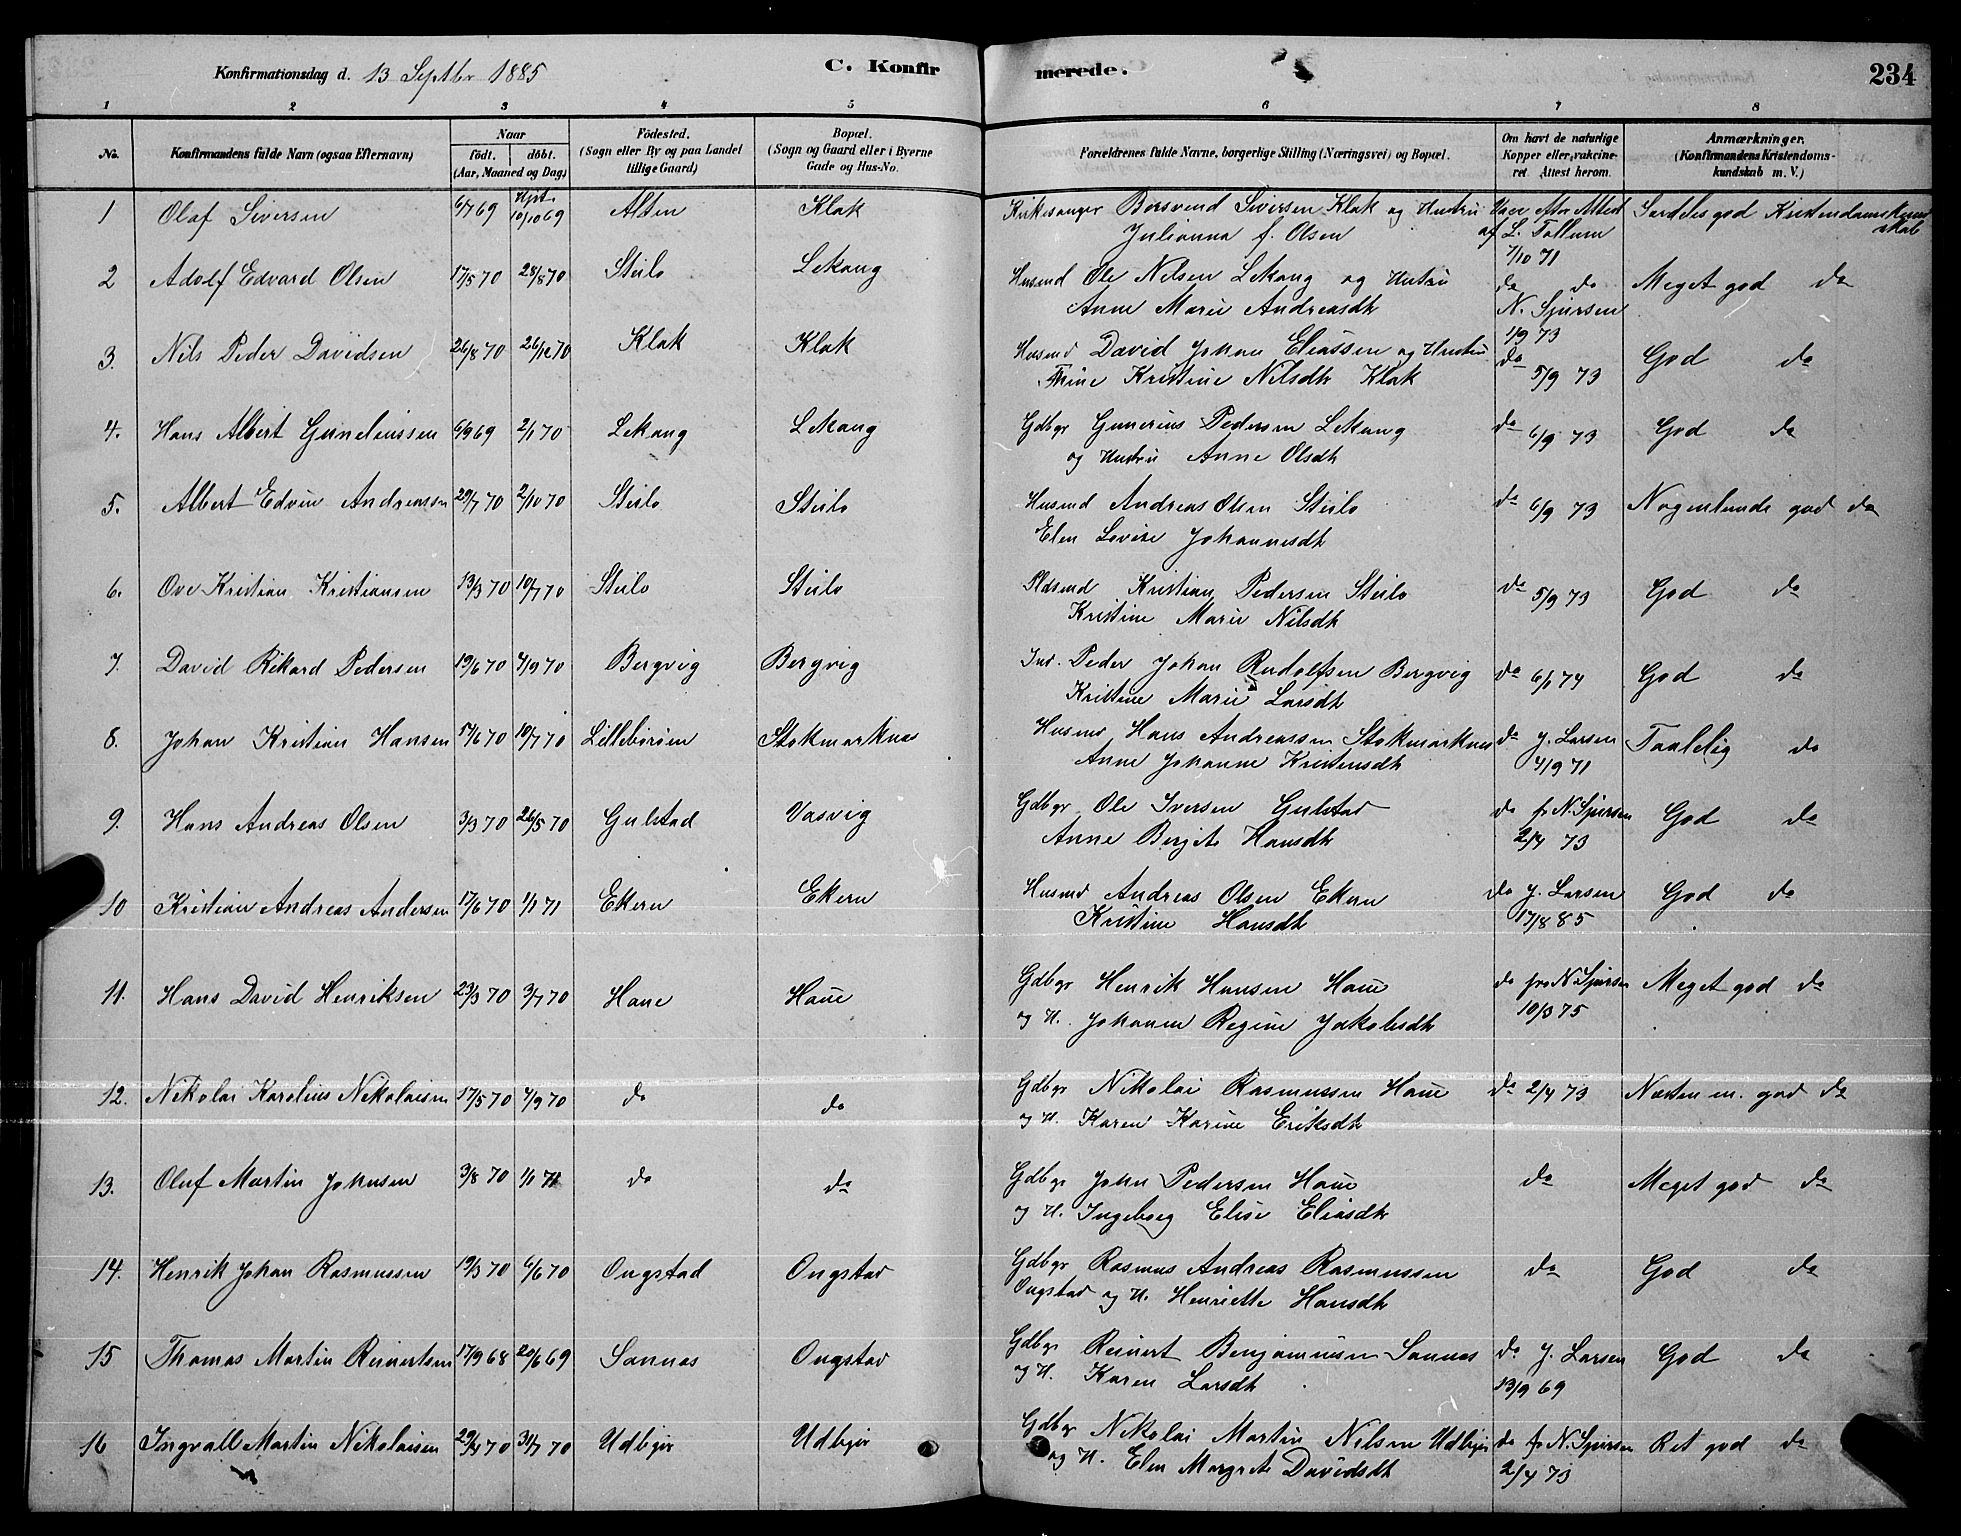 Konfirmationsdag d. 13 Septbr 1885
C. Konfirmerede.
234
1 2 3 4 5 6 7 8
No.
Konfirmandens fulde Navn (ogsaa Efternavn)
Naar födt. döbt. (Aar, Maaned og Dag)
Födested. (Sogn eller By og paa Landet tillige Gaard)
Bopæl. (Sogn og Gaard eller i Byerne Gade og Hus-No.
Forældrenes fulde Navne, borgerlige Stilling (Næringsvei) og Bopæl.
Om havt de naturlige Kopper eller vakcineret. Attest herom.
Anmærkninger. (Konfirmandens Kristendomskundskab m. V.)
1 Olaf Siversen 6/7 69 Hjdt. 10/10 69 Alten Klak Kirkesanger Borsvend Siversen Klak og Hustru Vacc. efter Attest Særdeles god Kristendomskundskab
Julianna f. Olsen af L. Tollum 7/10 71
2 Adolf Edvard Olsen 17/5 70 28/8 70 Steilo Lekang Husmd Ole Nilsen Lekang og Hustru do do Meget god do
Anne Marie Andreasdtr N. Sjursen 1/9 73
3. Nils Peder Davidsen 26/8 70 26/12 70 Klak Klak Husmd David Johan Eliassen og Hustru do 5/9 73 God do
Trine Kristine Nilsdtr Klak
4. Hans Albert Guneliussen 6/9 69 2/1 70 Lekang Lekang Gdbgr Gunerius Pedersen Lekang do 6/9 73 God do
og Hustru Anne Olsdtr
5. Albert Edvin Andreassen 29/7 70 2/10 70 Steilo Steilo Husmd Andreas Olsen Steilo do 6/9 73 Nogenlunde god do
Elen Lovise Johannesdtr
6. Ove Kristian Kristiansen 13/3 70 10/7 70 Steilo Steilo Pladsmd Kristian Pedersen Steilo do 5/9 73 God do
Kristine Marie Nilsdtr
7. David Rikard Pedersen 19/6 70 4/9 70 Bergvig Bergvig Ind. Peder Johan Rudolfsen Bergvig do 6/1 74 God do
Kristine Marie Larsdtr
8. Johan Kristian Hansen 17/6 70 10/7 70 Lilleböröen Stokmarknes Husmd Hans Andreassen Stokmarknes do J. Larsen Taalelig do
Anne Johanne Kristensdtr 4/9 71
9. Hans Andreas Olsen 3/3 70 26/5 70 Gulstad Vasvig Gdbgr Ole Iversen Gulstad do fr N. Sjursen God do
Anne Bergite Hansdtr 2/4 73
10 Kristian Andreas Andersen 17/6 70 1/1 71 Ekern Ekern Husmd Andreas Olsen Ekern do J. Larsen God do
Kristine Hansdtr 17/8 85
11. Hans David Henriksen 23/3 70 3/7 70 Haue Haue Gdbgr Henrik Hansen Haue do fra N. Sjursen Meget god do
og H. Johanne Regine Jakobsdtr 10/3 75
12. Nikolai Karolius Nikolaisen 17/5 70 4/9 70 do do Gdbgr Nikolai Rasmussen Haue do 2/4 73 Næsten m. god do
og H. Karen Karine Eriksdtr
13. Oluf Martin Johnsen 3/8 70 1/1 71 do do Gdbgr John Pedersen Haue do Meget god do
og H. Ingeborg Elise Eliasdtr
14. Henrik Johan Rasmussen 19/3 70 6/6 70 Ongstad Ongstad Gdbgr Rasmus Andreas Rasmussen do God do
Ongstad og H. Henriette Hansdtr
15 Thomas Martin Reinertsen 17/9 68 20/6 69 Sannæs Ongstad Gdbgr Reinert Benjaminsen Sannæs do J. Larsen God do
og H. Karen Larsdtr 13/9 69
16 Ingvall Martin Nikolaisen 29/4 70 31/7 70 Udbyer Udbyer Gdbgr Nikolai Martin Nilsen Udbyer do fr N. Sjursen Ret god do
og H. Elen Margrete Davidsdtr 2/4 73